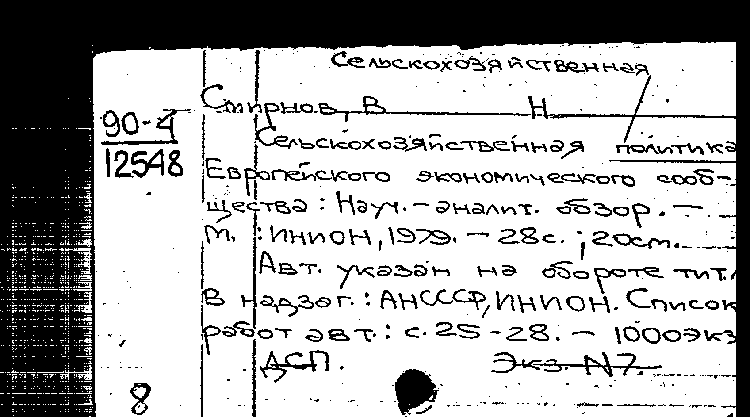 Сельскохозяйственная
Смирнов, В Н
90-4
12548
Сельскохозяйственная политика
Европейского экономического сооб-
щества : Науч.-аналит. обзор. –
М. : ИНИОН, 1979. – 28с. ; 20см.
Авт. указан на обороте тит.
В надзаг.: АНСССР, ИНИОН. Список
работ авт.: с. 25-28. – 1000экз
ДСП. Экз. N7.
8